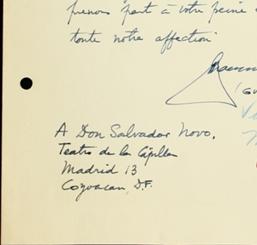 prenons part à votre peine
toute notre affection
A Don Salvador Novo.
Teatro de la Capilla
Madrid 13
Coyoacan, D.F.